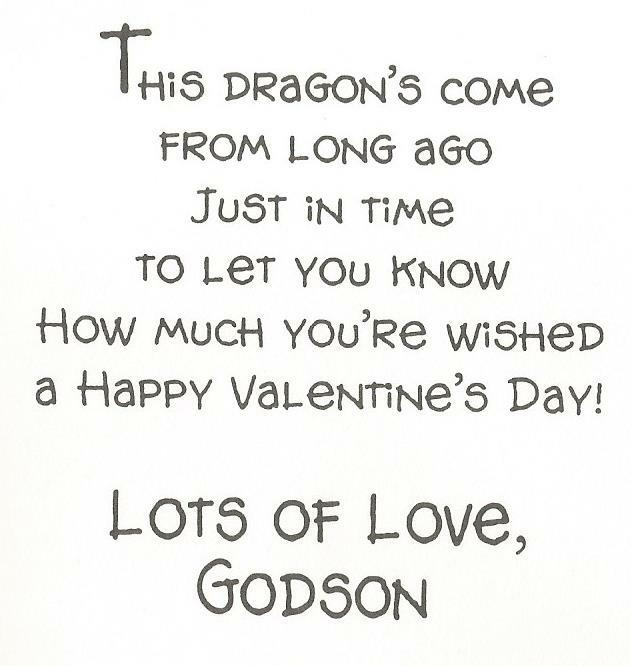 This Dragon's come
from long ago
Just in time
to let you know
How much you're wished
a Happy Valentine's Day!
Lots of Love,
Godson